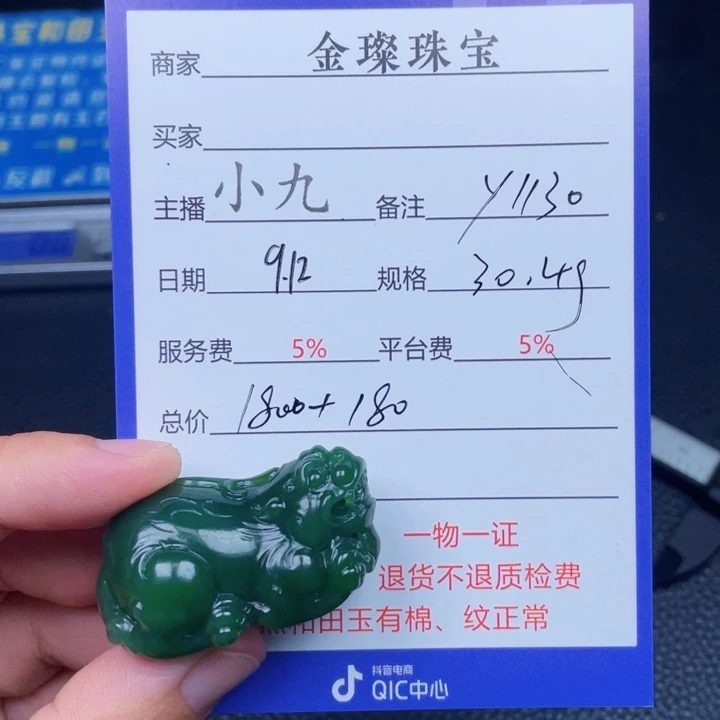 商家 金璨珠宝
买家
主播 小九 备注 Y1130
日期 9.12 规格 30.4g
服务费 5% 平台费 5%
总价 1800+180
一物一证
退货不退质检费
和田玉有棉、纹正常
抖音电商
QIC中心